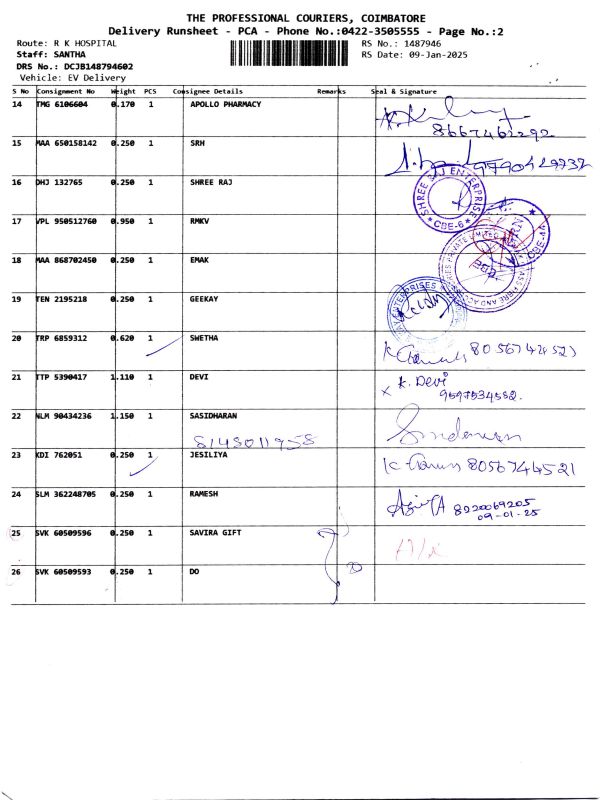 THE PROFESSIONAL COURIERS, COIMBATORE
Delivery Runsheet - PCA - Phone No.:0422-3505555 - Page No.:2
Route: R K HOSPITAL RS No.: 1487946
Staff: SANTHA RS Date: 09-Jan-2025
DRS No.: DCJB148794602
Vehicle: EV Delivery
S No Consignment No Weight PCS Consignee Details Remarks Seal & Signature
14 TMG 6106604 0.170 1 APOLLO PHARMACY
8667462292
15 MAA 650158142 0.250 1 SRH
9790429732
16 DHJ 132765 0.250 1 SHREE RAJ
SHREE RAJ ENTERPRISE
CBE-6
17 VPL 950512760 0.950 1 RMKV
18 MAA 868702450 0.250 1 EMAK
19 TEN 2195218 0.250 1 GEEKAY
ENTERPRISES
20 TRP 6859312 0.620 1 SWETHA
21 TTP 5390417 1.110 1 DEVI x K. Devi
9597534552.
22 NLM 90434236 1.150 1 SASIDHARAN
8148011958
23 KDI 762051 0.250 1 JESILIYA 8056744521
24 SLM 362248705 0.250 1 RAMESH 8220069205
09-01-25
25 SVK 60509596 0.250 1 SAVIRA GIFT
26 SVK 60509593 0.250 1 DO 20